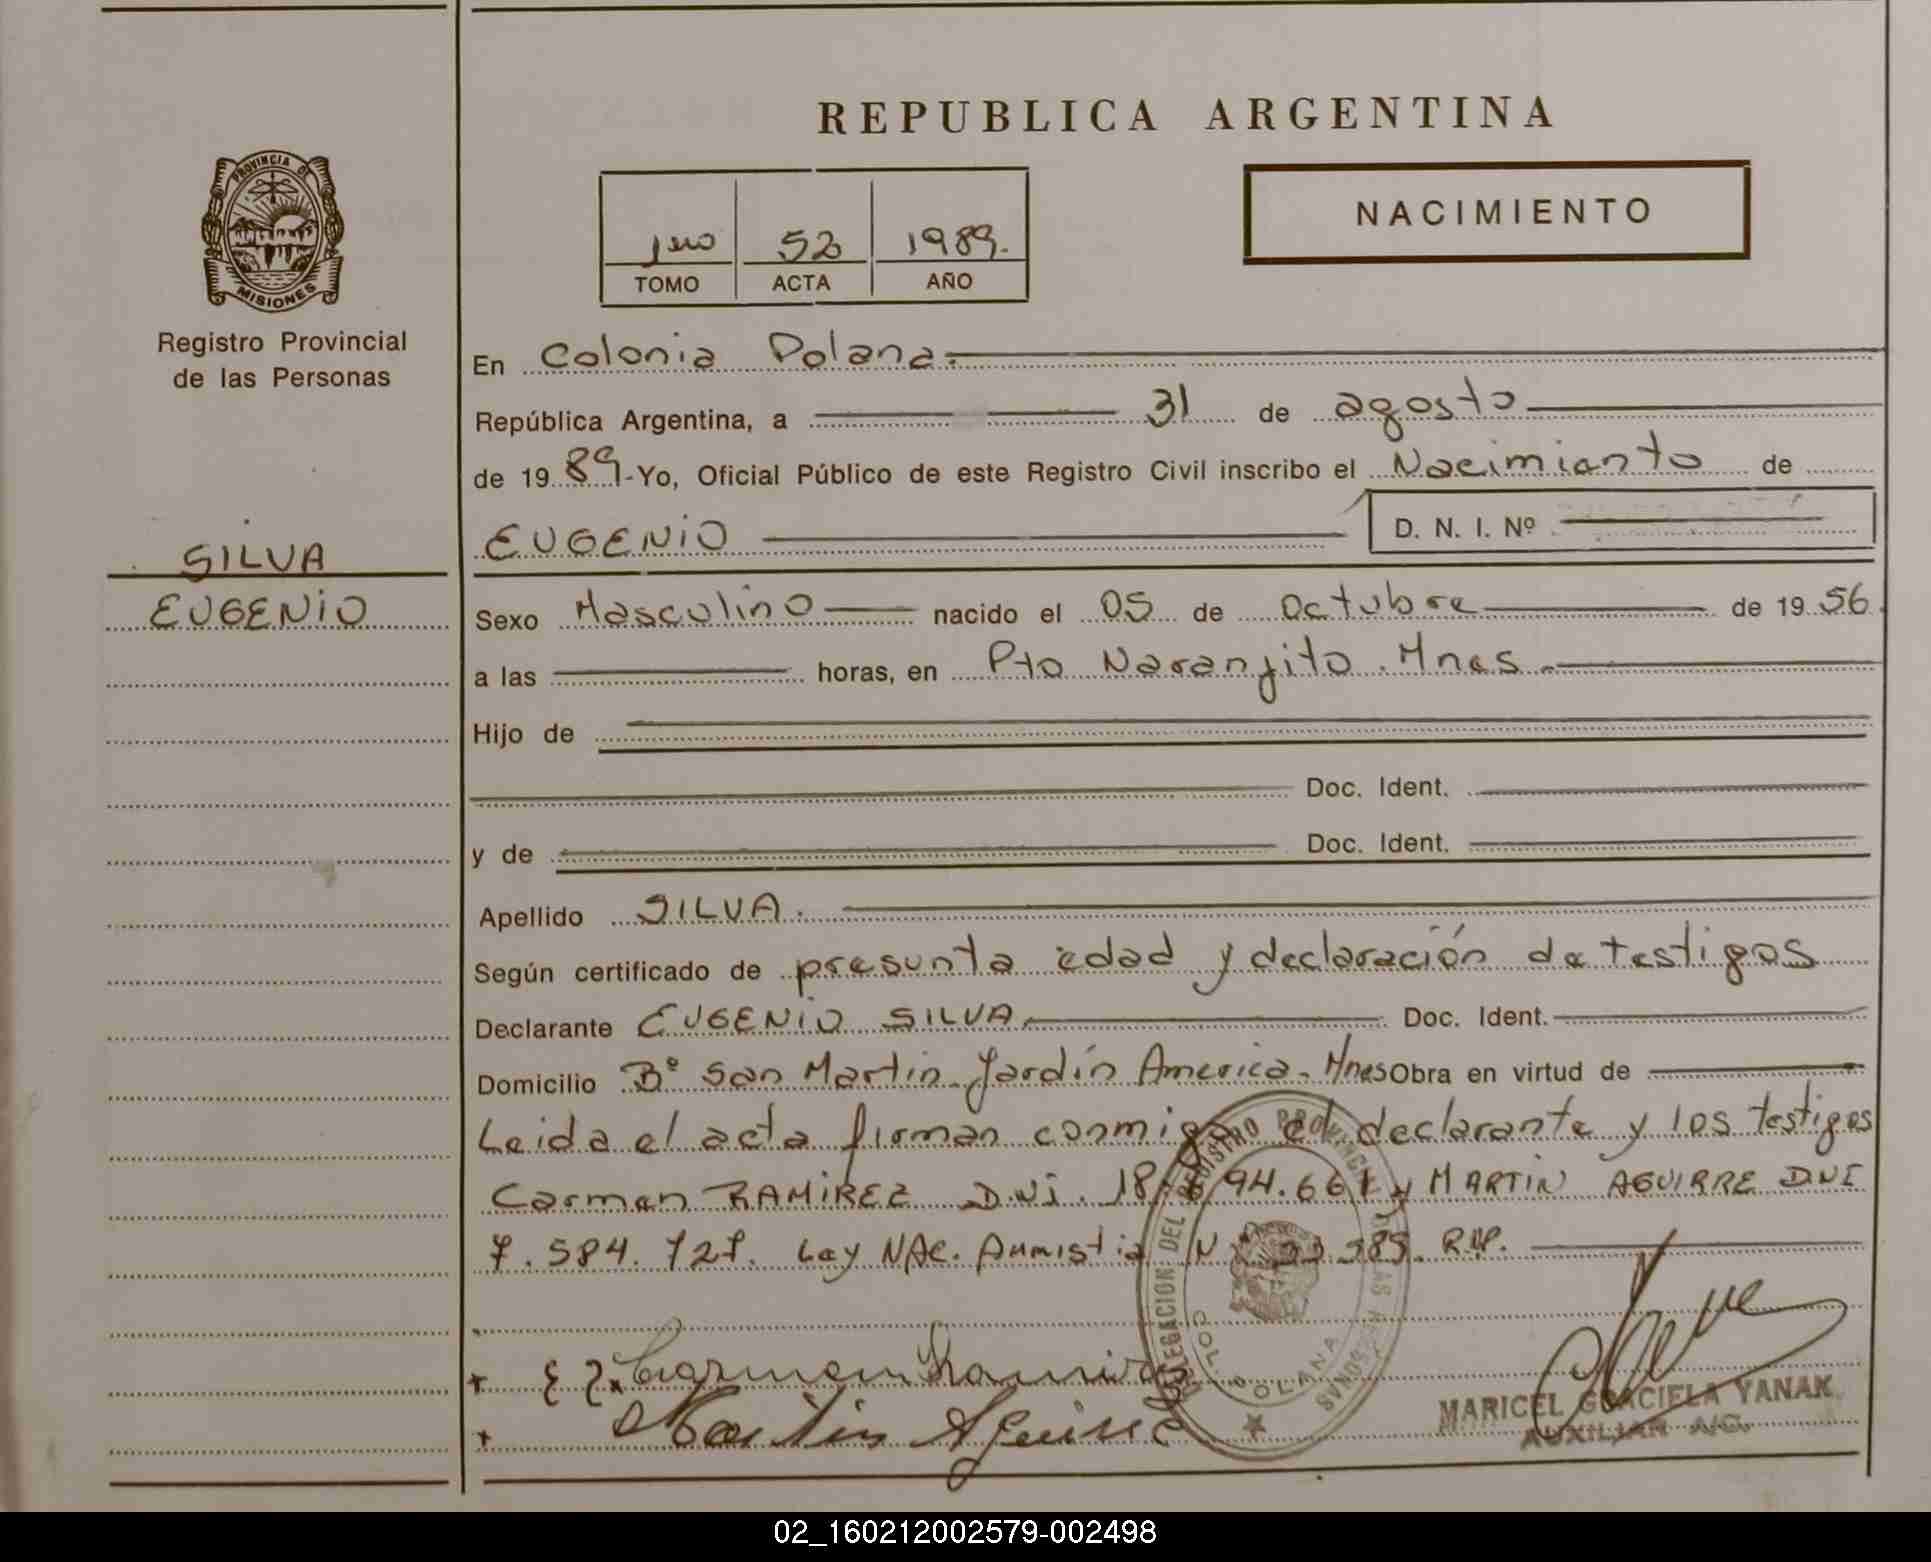 REPUBLICA ARGENTINA
PROVINCIA DE
MISIONES
Registro Provincial
de las Personas
1ero 52 1989.
TOMO ACTA AÑO
NACIMIENTO
En Colonia Polana.
República Argentina, a 31 de agosto
de 1989.- Yo, Oficial Público de este Registro Civil inscribo el Nacimianto de
EUGENIO D. N. I. Nº
SILVA
EUGENIO
Sexo Masculino nacido el 05 de Octubre de 1956.
a las horas, en Pto Naranjito. Mnes.
Hijo de
Doc. Ident.
y de Doc. Ident.
Apellido SILVA.
Según certificado de presunta edad y declaración de testigos
Declarante EUGENIO SILVA. Doc. Ident.
Domicilio Bº San Martin. Jardín America. Mnes Obra en virtud de
Leida el acta firman conmigo el declarante y los testigos
Carmen RAMIREZ D.N.I. 18. 94.661 y MARTIN AGUIRRE DNI
7.584.727. Ley NAC. Amnistia N
Carmen Ramirez
Martin Aguirre
DELEGACION DEL REGISTRO PROVINCIAL DE LAS PERSONAS
COL. POLANA
MARICEL GRACIELA YANAK
AUXILIAR A/C.
02_160212002579-002498